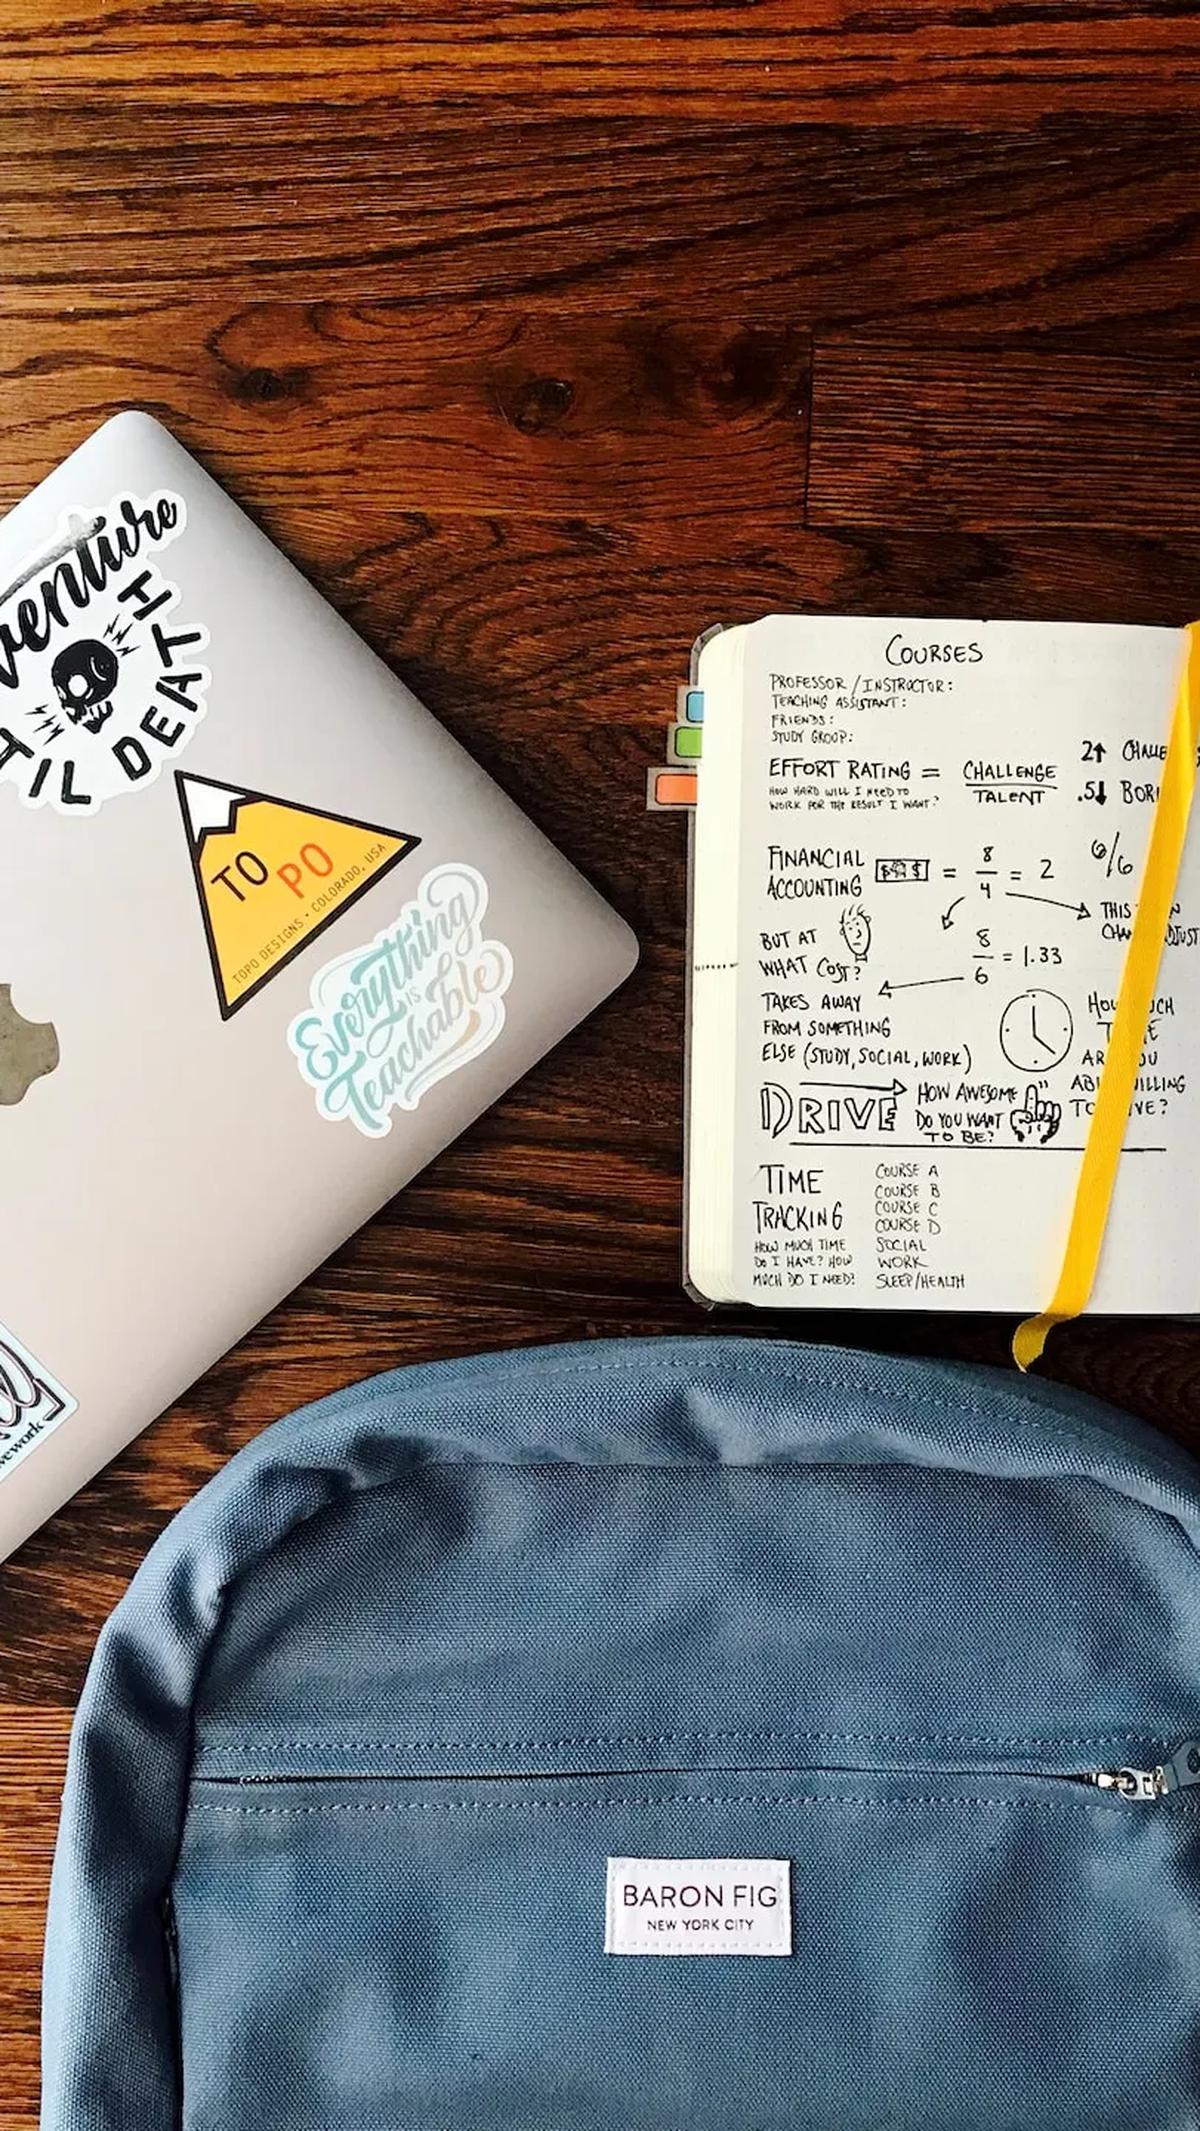 venture
TIL DEATH
TO
PO
TOPO DESIGNS • COLORADO, USA
Everything
IS
Teachable
wework
COURSES
PROFESSOR / INSTRUCTOR:
TEACHING ASSISTANT:
FRIENDS:
STUDY GROUP:
EFFORT RATING = CHALLENGE
TALENT
HOW HARD WILL I NEED TO
WORK FOR THE RESULT I WANT?
2↑ CHALLE
.5↓ BORI
FINANCIAL
ACCOUNTING
$ $ = 8/4 = 2
6/6
THIS
BUT AT
WHAT COST?
8/6 = 1.33
TAKES AWAY
FROM SOMETHING
ELSE (STUDY, SOCIAL, WORK)
DRIVE
HOW AWESOME
DO YOU WANT
TO BE?
TIME
TRACKING
HOW MUCH TIME
DO I HAVE? HOW
MUCH DO I NEED?
COURSE A
COURSE B
COURSE C
COURSE D
SOCIAL
WORK
SLEEP/HEALTH
BARON FIG
NEW YORK CITY